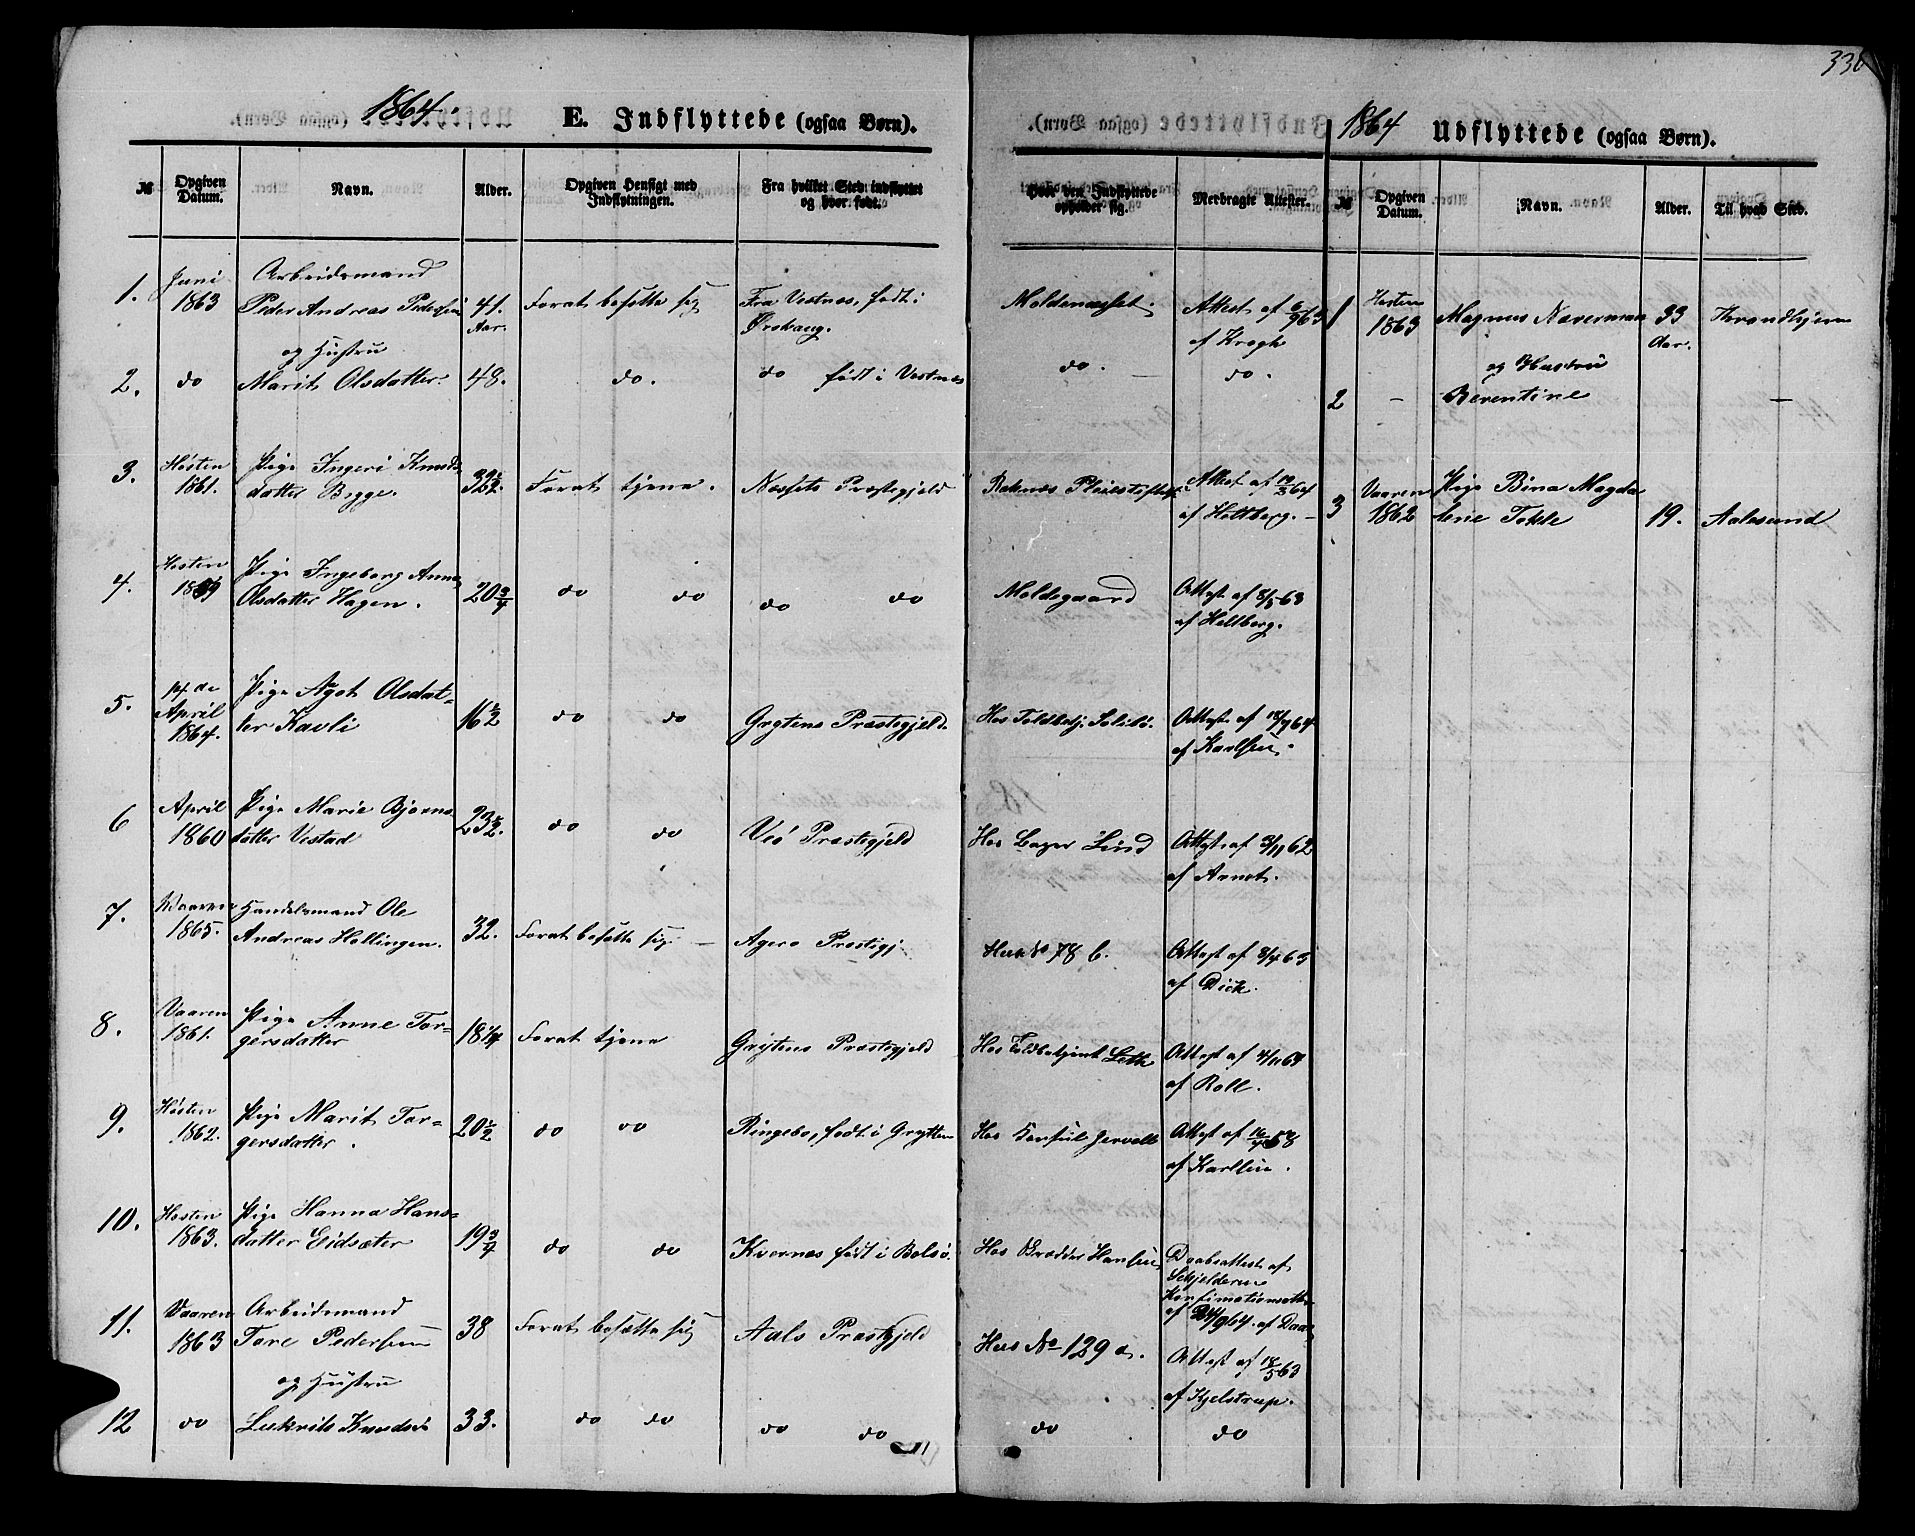 336
1864. E. Indflyttede (ogsaa Børn).
1864 Udflyttede (ogsaa Børn).
№ Opgiven Datum. Navn. Alder. Opgiven Hensigt med Indflytningen. Fra hvilket Sted indflyttet og hvor født. Hvor den Indflyttede opholder sig. Medbragte Attester.
№ Opgiven Datum. Navn. Alder. Til hvad Sted.
1. Juni 1863 Arbeidsmand Peder Andreas Pedersen 41. Aar. Forat besætte sig Fra Vestnæs, født i Ørskaug. Moldenæsset. Attest af 6/9 63 af Krogh
og Hustru
2. do Marit Olsdatter. 48. do. do født i Vestnæs do. do.
3. Høsten 1861. Pige Ingeri Knuds datter Bygge. 32½. Forat tjene. Næssets Præstegjeld Reknæs Pleiestiftelse Attest af 64 af Heltberg.
4. Høsten Pige Ingeborg Anne Olsdatter Hagen. 20¾ do do do do Moldegaard Attest af 8/5 63 af Heltberg.
5. 14de April 1864. Pige Agot Olsdat- ter Kavli 16½ do do Grytens Præstegjeld. Hos Toldbetj. Attest af 18/9 64 af Karlsen.
6 April 1860 Pige Marie Bjørns datter Vestad 23½. do do Veø Præstegjeld Hos Bager Lind Attest af 3/11 62 af Arnet.
7. Vaaren 1865. Handelsmand Ole Andreas Hollingen. 32. Forat besætte sig Agerø Præstegj. Huus № 78 b. Attest af 8/4 63 af Dick.
8. Vaaren 1861. Pige Anne Tor= gersdatter 18¼ Forat tjene Grytens Præstegjeld Hos Toldbetjent Leth Attest af 4/11 64 af Roll.
9. Høsten 1862. Pige Marit Tor= gersdatter. 20½ do do Ringebo, født i Grytten Hos Konsul Gørvell Attest af 16/4 58 af Karlsen.
10. Høsten 1863. Pige Hanna Hans= datter Eidsæter 19¾ do do Kvernæs født i Bolsø. Hos Brødder Hansen Daabsattest af Schjelderup Konfirmationsatt. af 24/9 64. af Daae
11. Vaaren 1863 Arbeidsmand Tore Pedersen 38 Forat besætte sig Aals Præstgjeld Huus № 129 a. Attest af 18/5 63 af Kjelstrup.
og Hustru
12 do Lukrits Knudsd. 33. do do do do do do
1 Høsten 1863 Magnus Naverman 33 Aar. Throndhjem
og Hustru
2 - Berentine -
3 Vaaren 1862 Pige Bina Magda lene Tokle 19. Aalesund